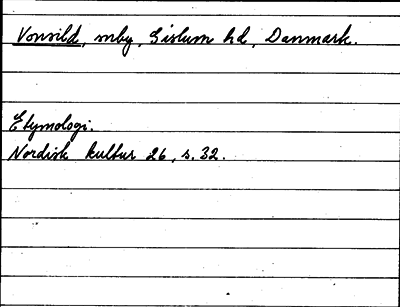 Vonsild, snby, Gislum hd, Danmark.
Etymologi.
Nordisk kultur 26, s. 32.